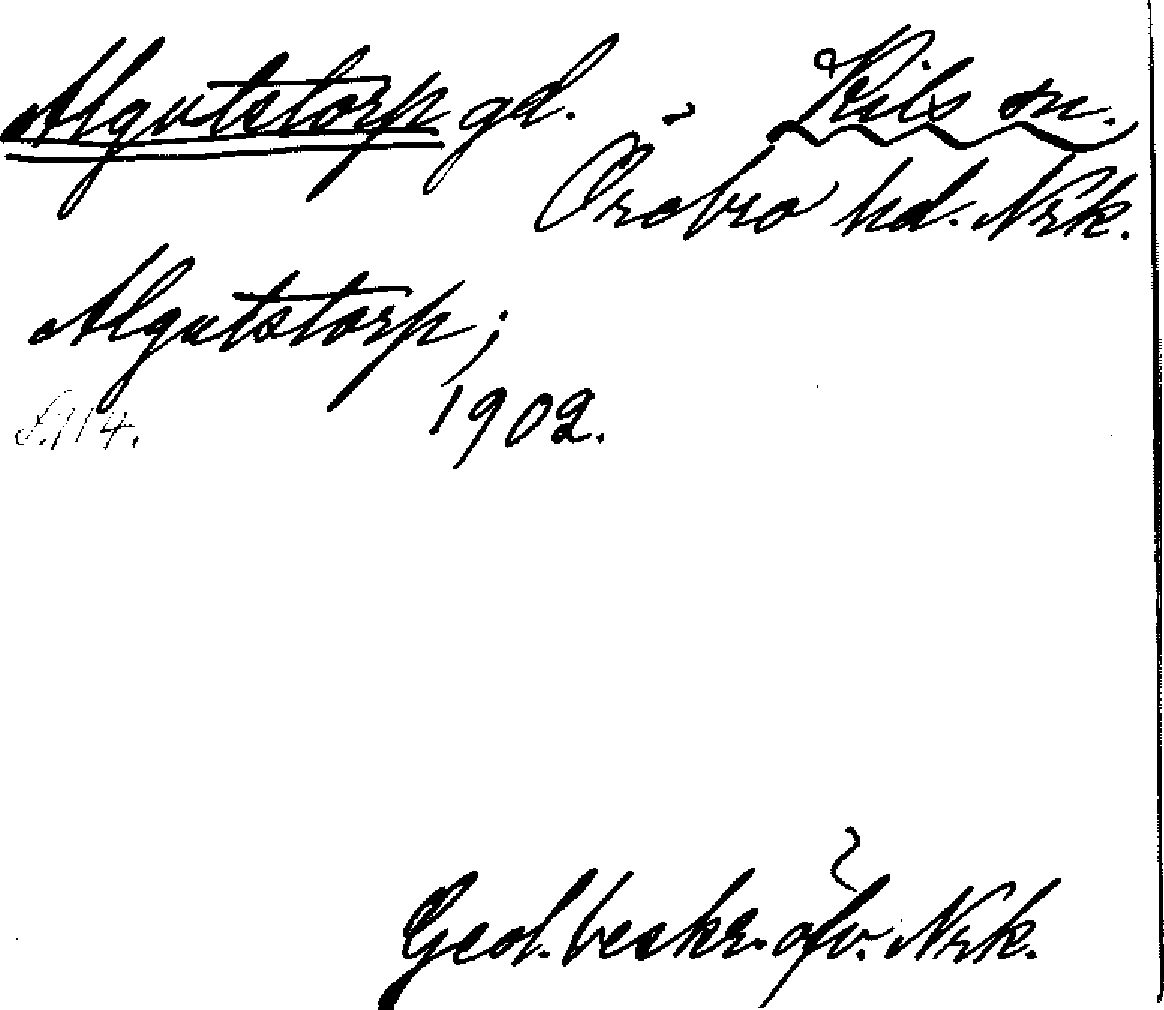 Algutstorp gd. - Kils sn.
Örebro hd. Nrk.
Algutstorp;
S. 114. 1902.
Geol. beskr. öfv. Nrk.